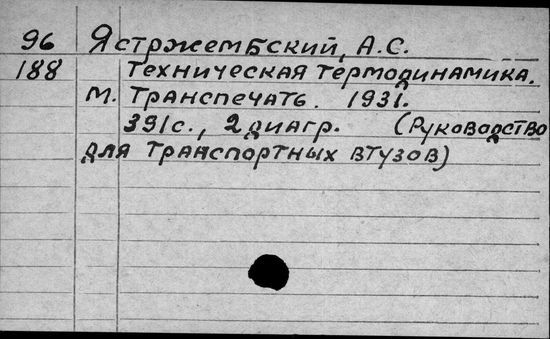 96 Ястржембский, А.С.
188 Техническая термодинамика.
М. Транспечать. 1931.
391с., 2 диагр. (Руководство
для транспортных втузов)